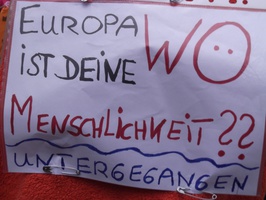 EUROPA WO
IST DEINE
MENSCHLICHKEIT??
UNTERGEGANGEN